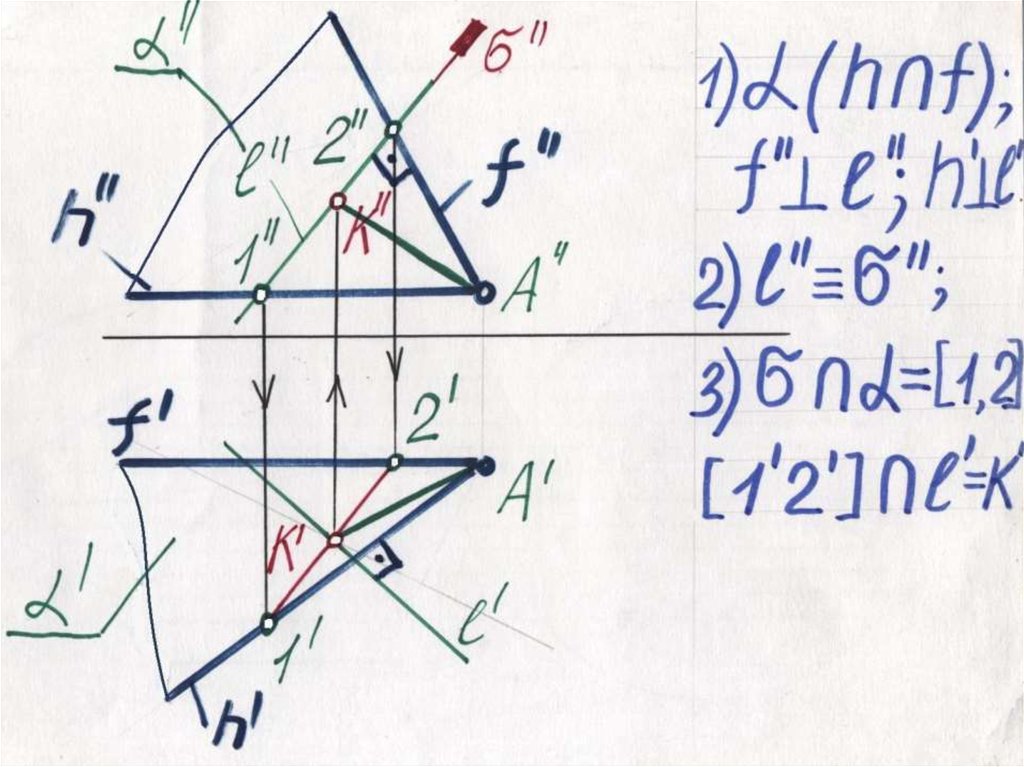 α"
σ"
2"
l"
f"
h"
K"
1"
A"
f'
2'
A'
K'
α'
l'
1'
h'
1) α (h ∩ f);
f" ⊥ l"; h' ⊥ l'
2) l" ≡ σ";
3) σ ∩ α = [1,2]
[1'2'] ∩ l' = K'